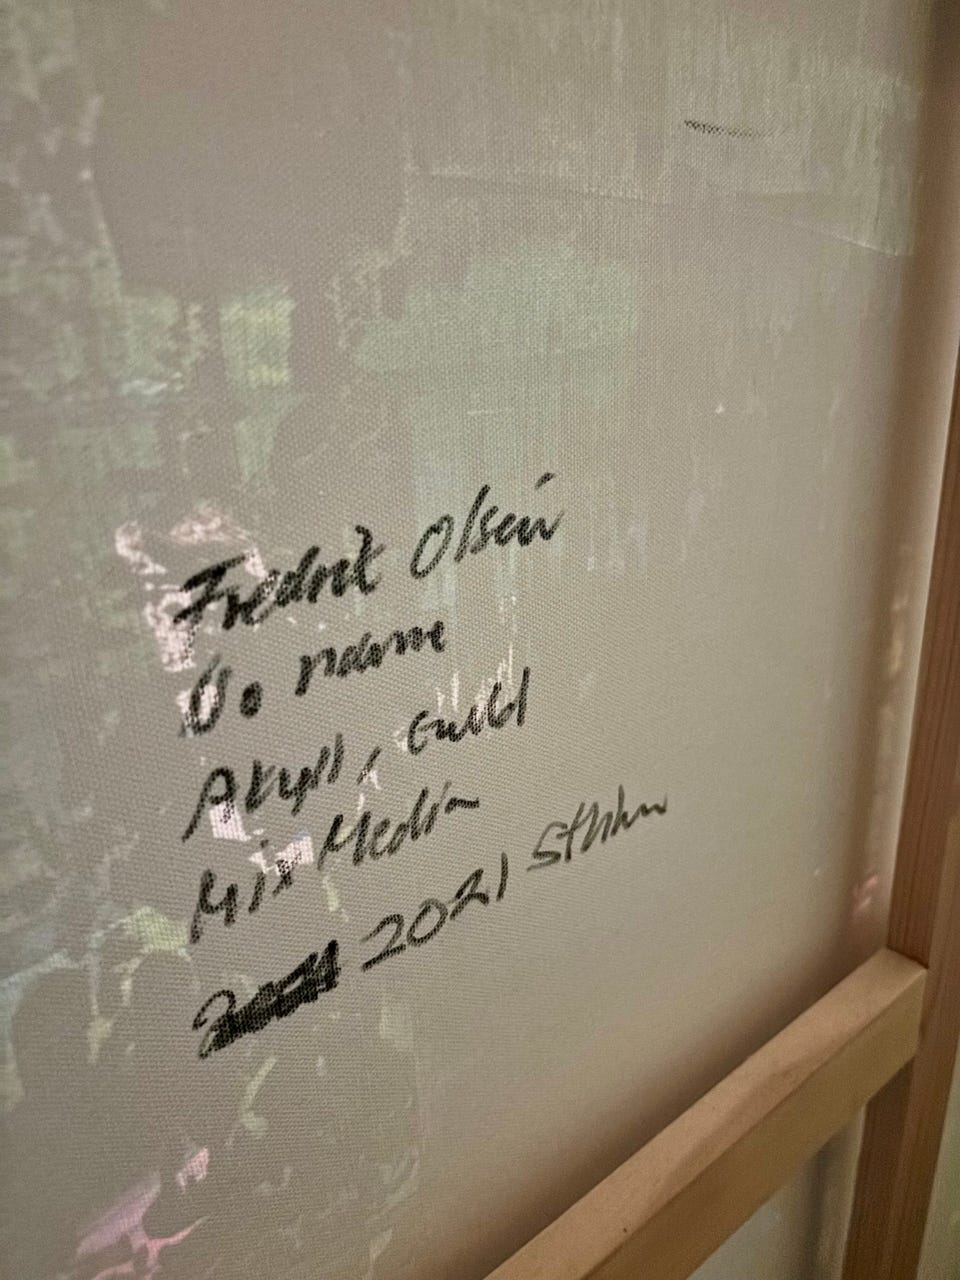 Fredrik Olsen
No name
Akryl,
Mix Media
2021 Sthlm